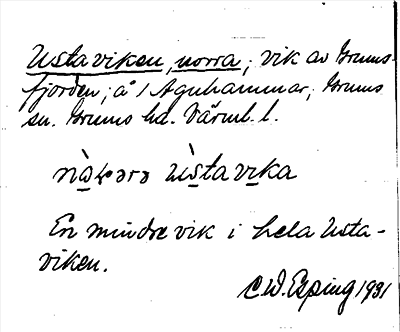 Ustaviken, norra; vik av Grums-
fjorden; å 1 Agnhammar; Grums
sn. Grums hd. Värml. l.
En mindre vik i hela Usta-
viken.
C.W. Esping 1931